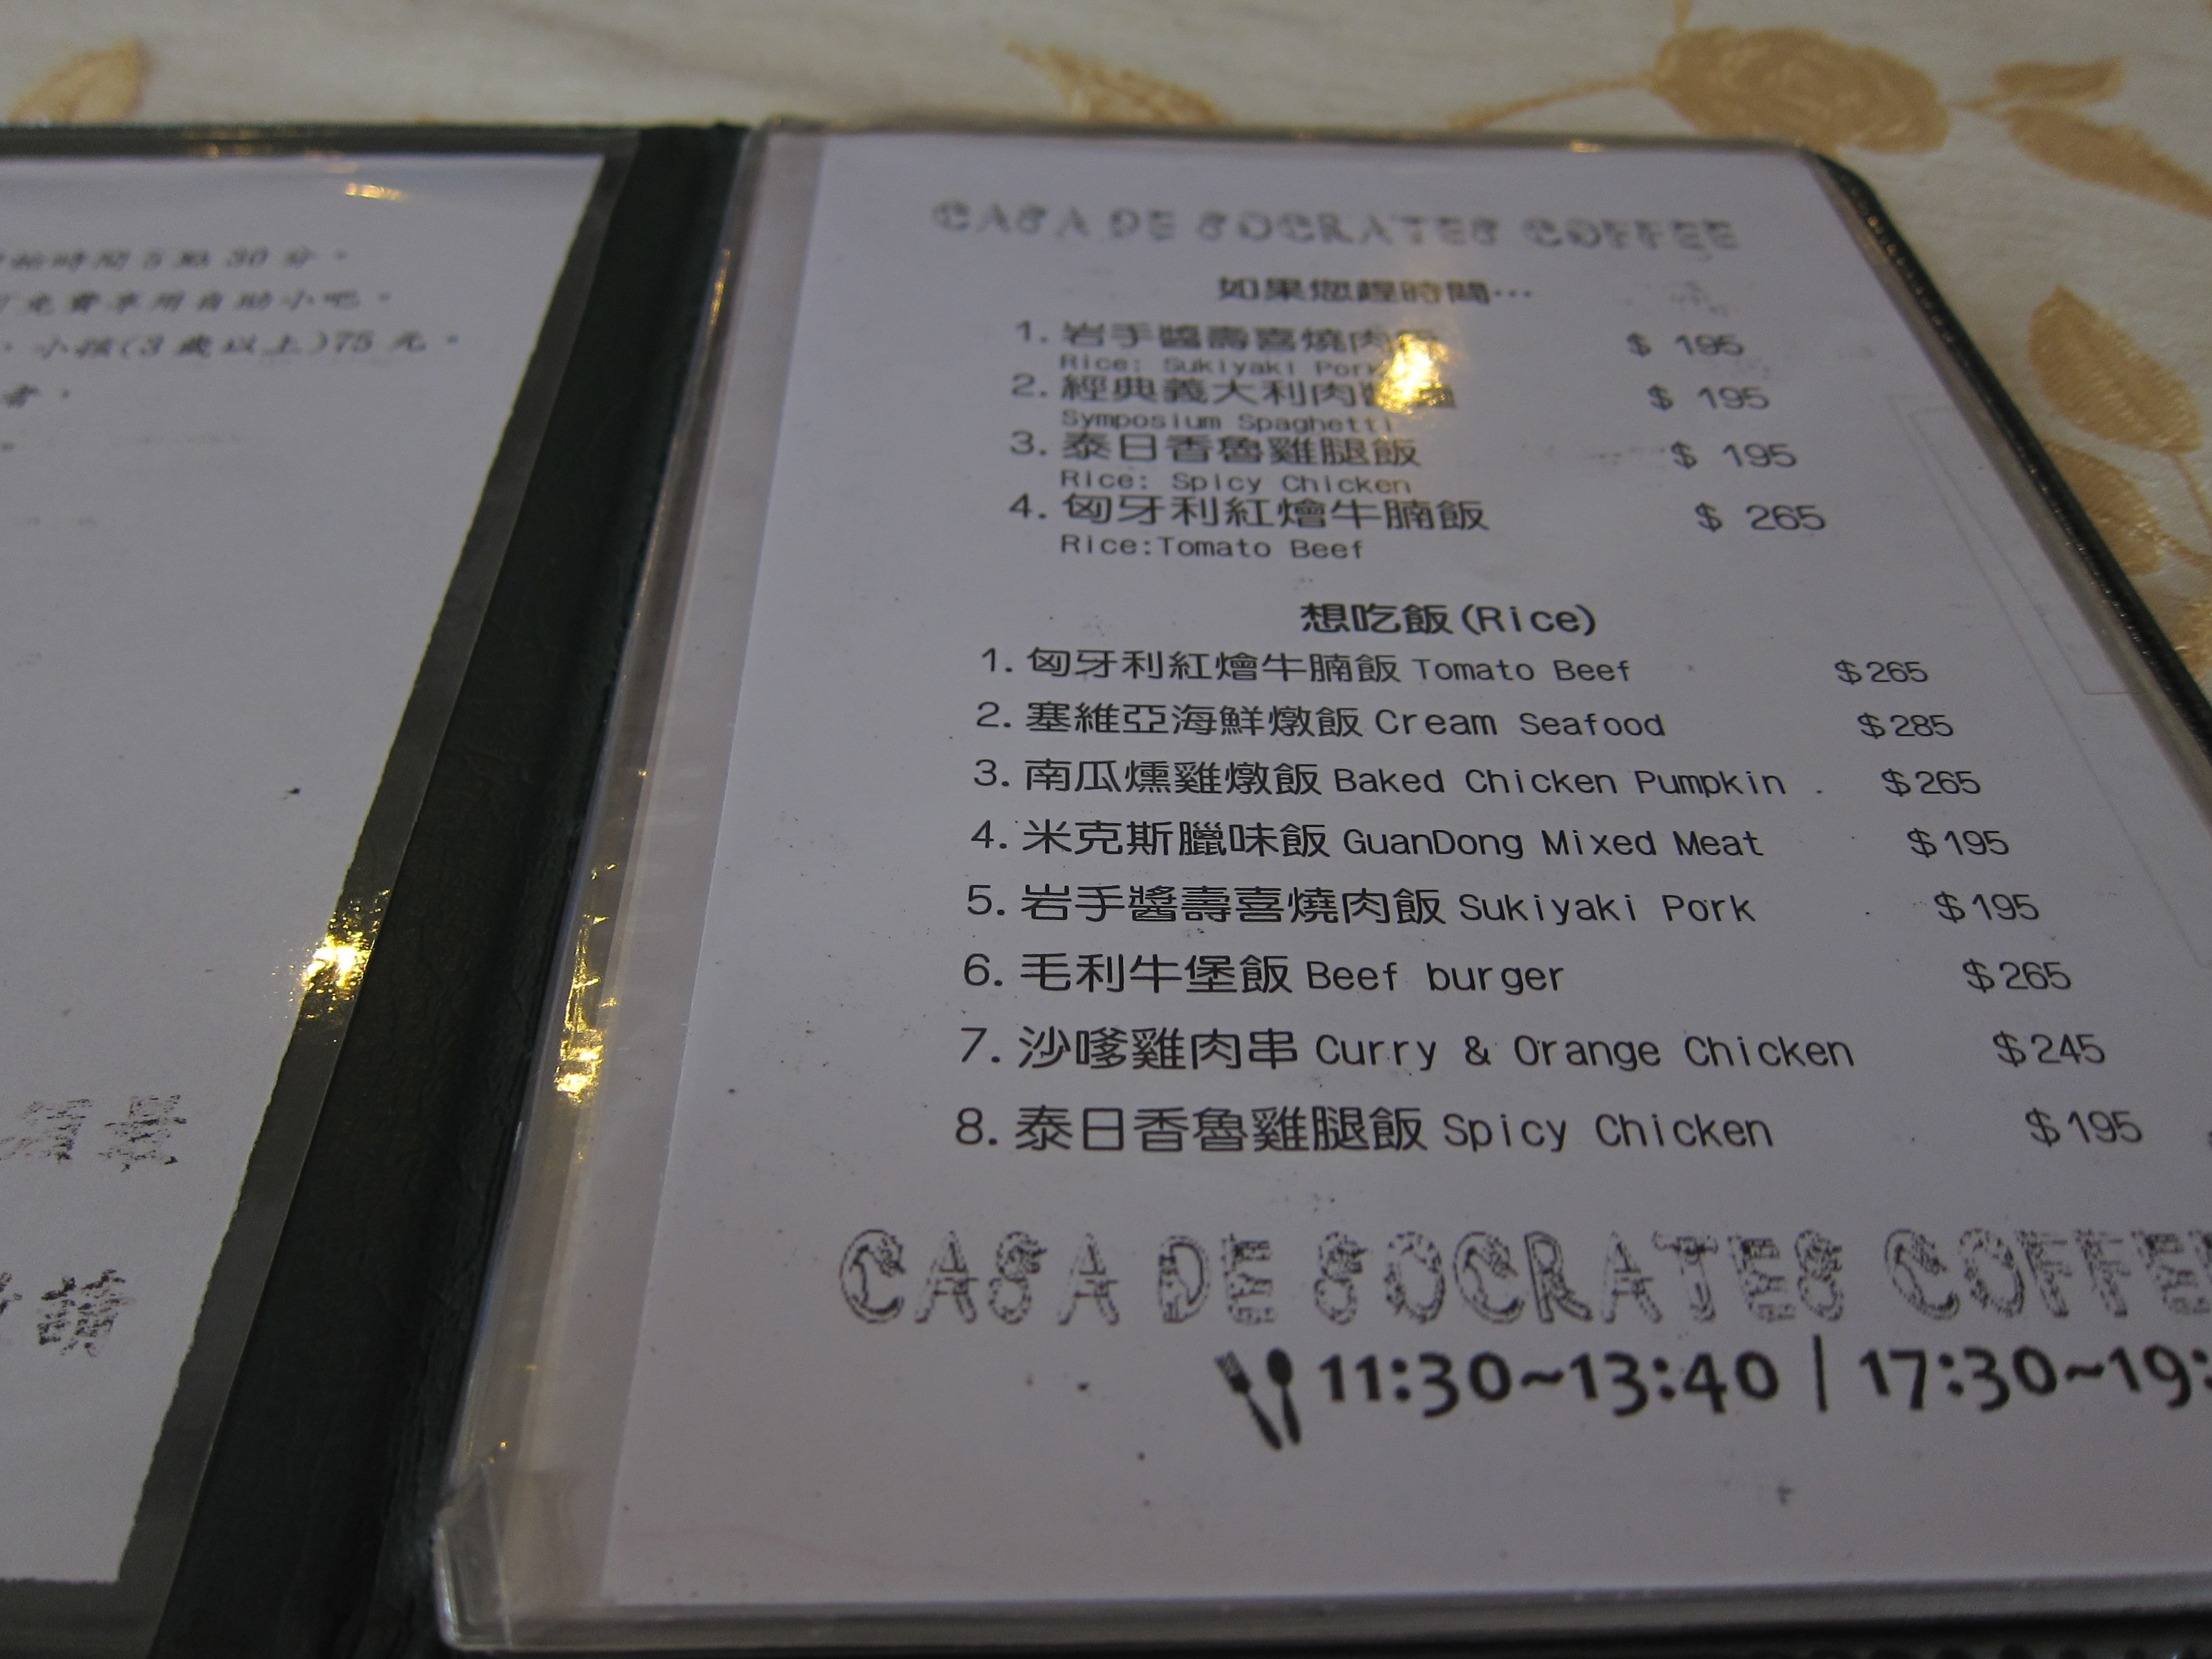 時間5點30分。
免費享用自助小吧。
，小孩(3歲以上)75元。
者，
CASA DE SOCRATES COFFEE
如果您趕時間…
1. 岩手醬壽喜燒肉 $ 195
Rice: Sukiyaki Pork
2. 經典義大利肉 $ 195
Symposium Spaghetti
3. 泰日香魯雞腿飯 $ 195
Rice: Spicy Chicken
4. 匈牙利紅燴牛腩飯 $ 265
Rice:Tomato Beef
想吃飯(Rice)
1. 匈牙利紅燴牛腩飯 Tomato Beef $265
2. 塞維亞海鮮燉飯 Cream Seafood $285
3. 南瓜燻雞燉飯 Baked Chicken Pumpkin $265
4. 米克斯臘味飯 GuanDong Mixed Meat $195
5. 岩手醬壽喜燒肉飯 Sukiyaki Pork $195
6. 毛利牛堡飯 Beef burger $265
7. 沙嗲雞肉串 Curry & Orange Chicken $245
8. 泰日香魯雞腿飯 Spicy Chicken $195
CASA DE SOCRATES COFFE
11:30~13:40 | 17:30~19: